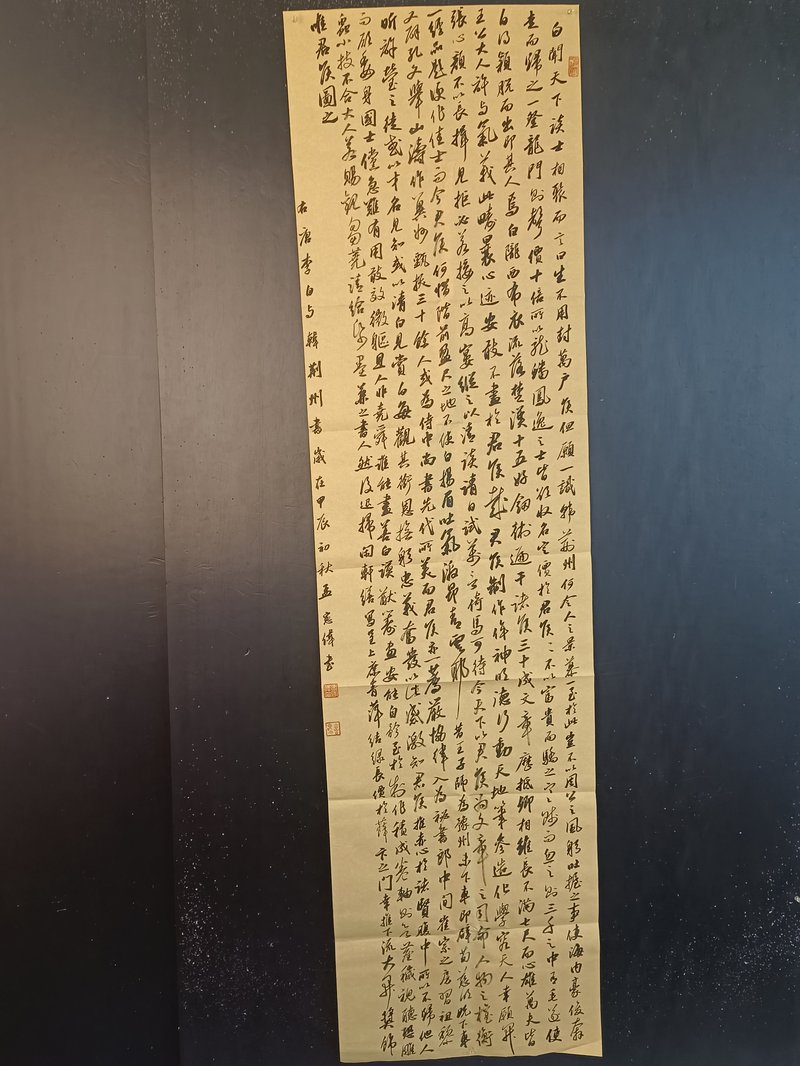 白聞天下談士相聚而言曰生不用封萬戶侯但願一識韓荊州何令人之景慕一至於此豈不以周公之風躬吐握之事使海内豪俊奔
走而歸之一登龍門則聲價十倍所以龍蟠鳳逸之士皆欲收名定價於君侯〻不以富貴而驕之寒賤而忽之則三千之中有毛遂使
白得穎脱而出即其人焉白隴西布衣流落楚漢十五好劍術遍干諸侯三十成文章歷抵卿相雖長不滿七尺而心雄萬夫皆
王公大人許與氣義此疇曩心迹安敢不盡於君侯哉君侯制作侔神明德行動天地筆參造化學究天人幸願開
張心顔不以長揖見拒必若接之以高宴縱之以清談請日試萬言倚馬可待今天下以君侯為文章之司命人物之權衡
一經品題便作佳士而今君侯何惜階前盈尺之地不使白揚眉吐氣激昂青雲耶昔王子師為豫州未下車即辟荀慈明既下車
又辟孔文舉山濤作冀州甄拔三十餘人或為侍中尚書先代所美而君侯亦一薦嚴協律入為祕書郎中間崔宗之房習祖黎
昕許瑩之徒或以才名見知或以清白見賞白每觀其銜恩撫躬忠義奮發以此感激知君侯推赤心於諸賢腹中所以不歸他人
而願委身國士儻急難有用敢效微軀且人非堯舜誰能盡善白謨猷籌畫安能自矜至於制作積成卷軸則欲塵穢視聽恐雕
蟲小技不合大人若賜觀芻蕘請給紙墨兼之書人然後退掃閑軒繕寫呈上庶青萍結綠長價於薛卞之門幸推下流大開獎飾
唯君侯圖之
右唐李白與韓荊州書歲在甲辰初秋孟偉書